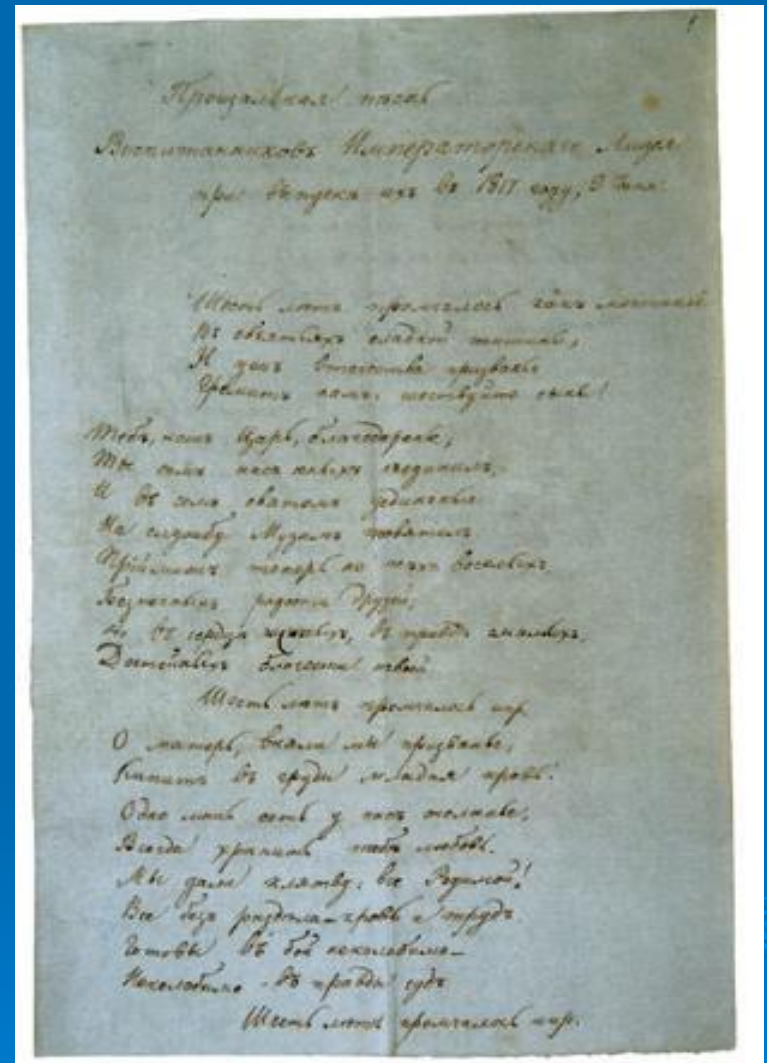 Прощальная пѣснь
Воспитанниковъ Императорскаго Лицея
при выпускѣ ихъ въ 1817 году, 9 Іюня.
Шесть лѣтъ промчалось какъ мечтанье
Въ объятьяхъ сладкой тишины,
И ужъ Отечества призванье
Гремитъ намъ: шествуйте сыны!
Тебѣ, нашъ Царь, благодаренье,
Ты самъ насъ юныхъ съединилъ,
И въ семъ святомъ уединеньѣ
На службу Музамъ посвятилъ
теперь не тѣхъ веселыхъ
радости друзей,
Но въ сердцѣ чистыхъ, въ правдѣ смѣлыхъ,
Достойныхъ благости твоей
Шесть лѣтъ промчалось ипр.
О матерь, вняли мы призванье,
Кипитъ въ груди младая кровь!
Одно лишь есть у насъ желанье,
Всегда хранить тебѣ любовь.
Мы дали клятву: все Родимой!
Все безъ раздѣла – кровь и трудъ
Готовы въ бой неколебимо –
Неколебимо – въ правды судъ
Шесть лѣтъ промчалось ипр.